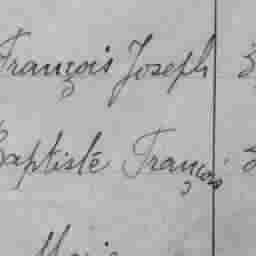 François Joseph 3
Baptiste François 3